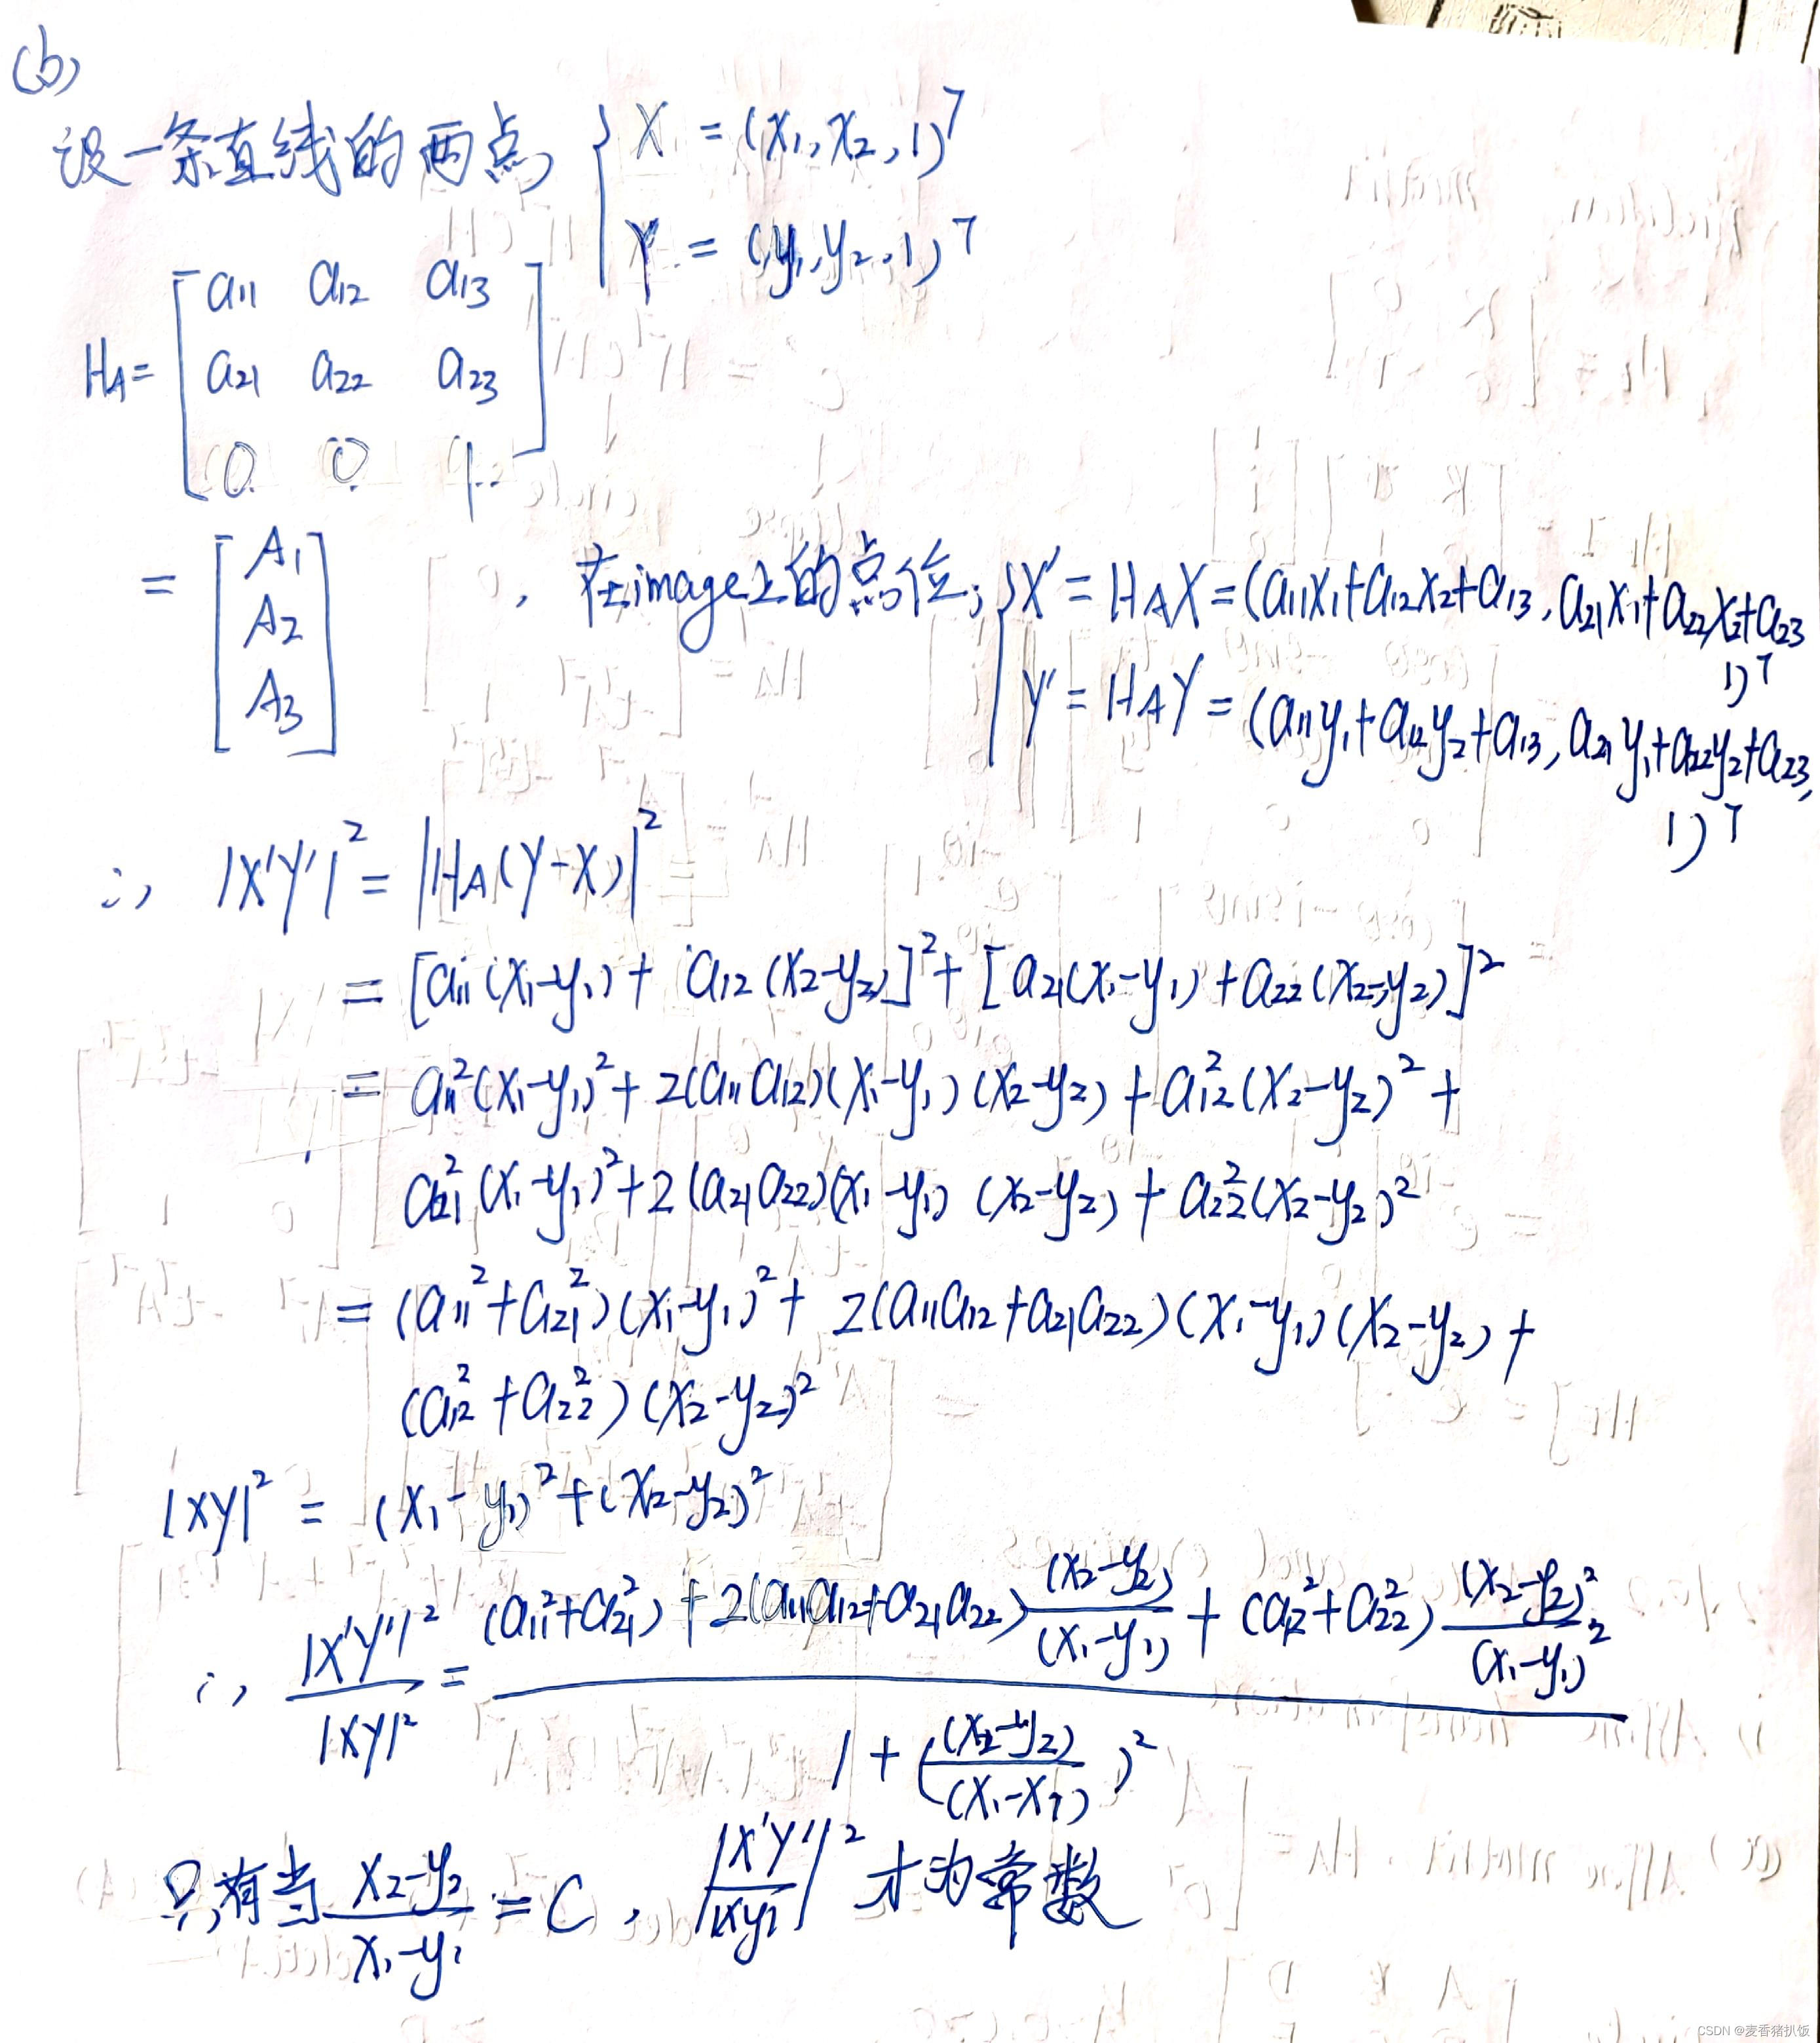 (b)
设一条直线的两点 { X = (x₁, x₂, 1)ᵀ
Y = (y₁, y₂, 1)ᵀ
H_A = [ a₁₁ a₁₂ a₁₃
a₂₁ a₂₂ a₂₃
0 0 1 ]
= [ A₁
A₂
A₃ ]
, 在image上的点位: { X' = H_A X = (a₁₁x₁+a₁₂x₂+a₁₃, a₂₁x₁+a₂₂x₂+a₂₃
1)ᵀ
Y' = H_A Y = (a₁₁y₁+a₁₂y₂+a₁₃, a₂₁y₁+a₂₂y₂+a₂₃,
1)ᵀ
∴, |X'Y'|² = |H_A(Y-X)|²
= [a₁₁(x₁-y₁) + a₁₂(x₂-y₂)]² + [a₂₁(x₁-y₁) + a₂₂(x₂-y₂)]²
= a₁₁²(x₁-y₁)² + 2(a₁₁a₁₂)(x₁-y₁)(x₂-y₂) + a₁₂²(x₂-y₂)² +
a₂₁²(x₁-y₁)² + 2(a₂₁a₂₂)(x₁-y₁)(x₂-y₂) + a₂₂²(x₂-y₂)²
= (a₁₁²+a₂₁²)(x₁-y₁)² + 2(a₁₁a₁₂+a₂₁a₂₂)(x₁-y₁)(x₂-y₂) +
(a₁₂²+a₂₂²)(x₂-y₂)²
|XY|² = (x₁-y₁)²+(x₂-y₂)²
∴, |X'Y'|²/|XY|² = [(a₁₁²+a₂₁²) + 2(a₁₁a₁₂+a₂₁a₂₂)(x₂-y₂)/(x₁-y₁) + (a₁₂²+a₂₂²)(x₂-y₂)²/(x₁-y₁)²] / [1 + ((x₂-y₂)/(x₁-x₁))²]
只有当 (x₂-y₂)/(x₁-y₁) = C, |X'Y'/XY|² 才为常数
CSDN @麦香猪扒饭